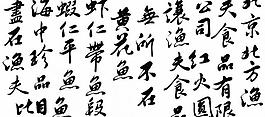 北京北方渔
夫食品有限
公司　红火圆
让渔夫食品
无所不在
黄花鱼
虾仁带鱼段
虾仁平鱼
海中珍品比目
尽在渔夫